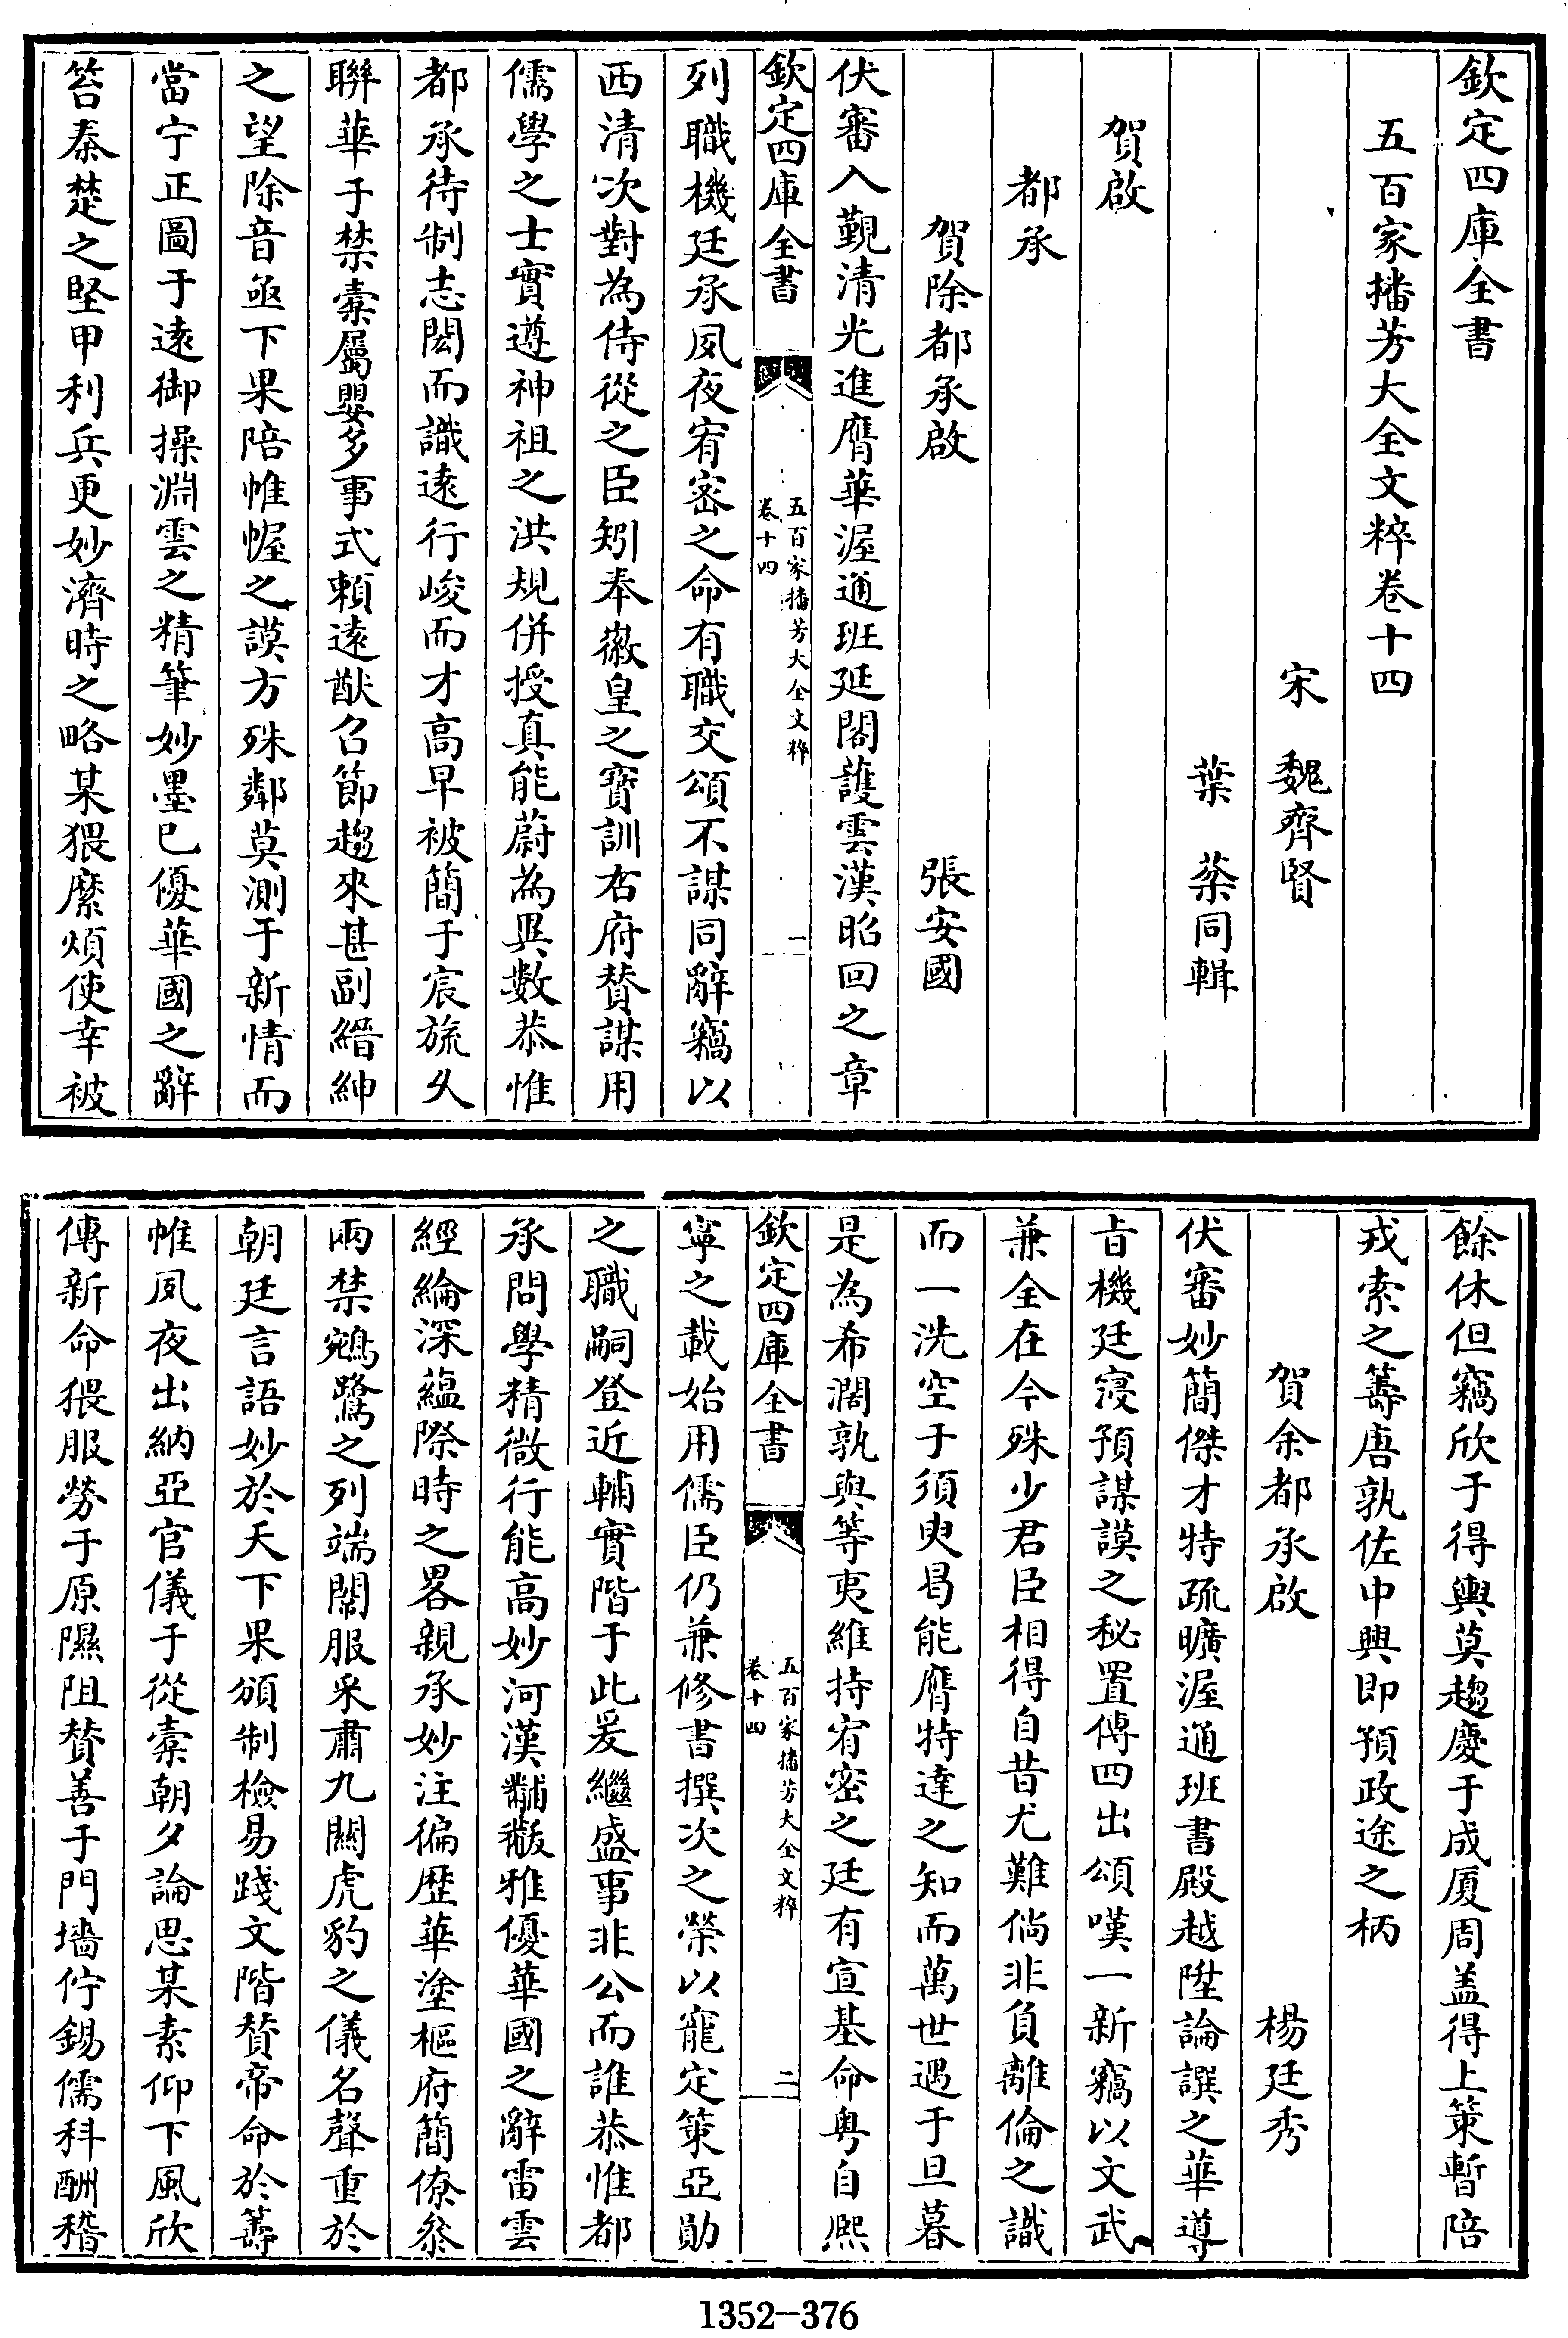 欽定四庫全書
五百家播芳大全文粹卷十四
宋　魏齊賢
葉　棻同輯
賀啟
都承
賀除都承啟　張安國
伏審入覲清光進膺華渥通班延閣護雲漢昭回之章
欽定四庫全書
五百家播芳大全文粹
卷十四
一
列職機廷承夙夜宥密之命有職交頌不謀同辭竊以
西清次對為侍從之臣矧奉徽皇之寶訓右府賛謀用
儒學之士實遵神祖之洪規併授真能蔚為異數恭惟
都承待制志閎而識逺行峻而才高早被簡于宸旒久
聯華于禁橐屬嬰多事式賴逺猷召節趨來甚副縉紳
之望除音亟下果陪帷幄之謨方殊鄰莫測于新情而
當宁正圖于逺御操淵雲之精筆妙墨已優華國之辭
笞秦楚之堅甲利兵更妙濟時之略某猥縻煩使幸被
餘休但竊欣于得輿莫趨慶于成厦周盖得上策暫陪
戎索之籌唐孰佐中興即預政途之柄
賀余都承啟　楊廷秀
伏審妙簡傑才特疏曠渥通班書殿越陞論譔之華導
旨機廷寖預謀謨之秘置傳四出頌嘆一新竊以文武
兼全在今殊少君臣相得自昔尤難倘非負離倫之識
而一洗空于須臾曷能膺特達之知而萬世遇于旦暮
是為希濶孰與等夷維持宥密之廷有宣基命粤自熙
欽定四庫全書
五百家播芳大全文粹
卷十四
二
寧之載始用儒臣仍兼修書撰次之榮以寵定策亞勛
之職嗣登近輔實階于此爰繼盛事非公而誰恭惟都
承問學精微行能高妙河漢黼黻雅優華國之辭雷雲
經綸深藴際時之畧親承妙注徧歴華塗樞府簡僚叅
兩禁鵷鷺之列端闈服采肅九闗虎豹之儀名聲重於
朝廷言語妙於天下果頒制檢易踐文階賛帝命於籌
帷夙夜出納亞官儀于從橐朝夕論思某素仰下風欣
傳新命猥服勞于原隰阻賛善于門墻佇錫儒科酬稽
1352-376